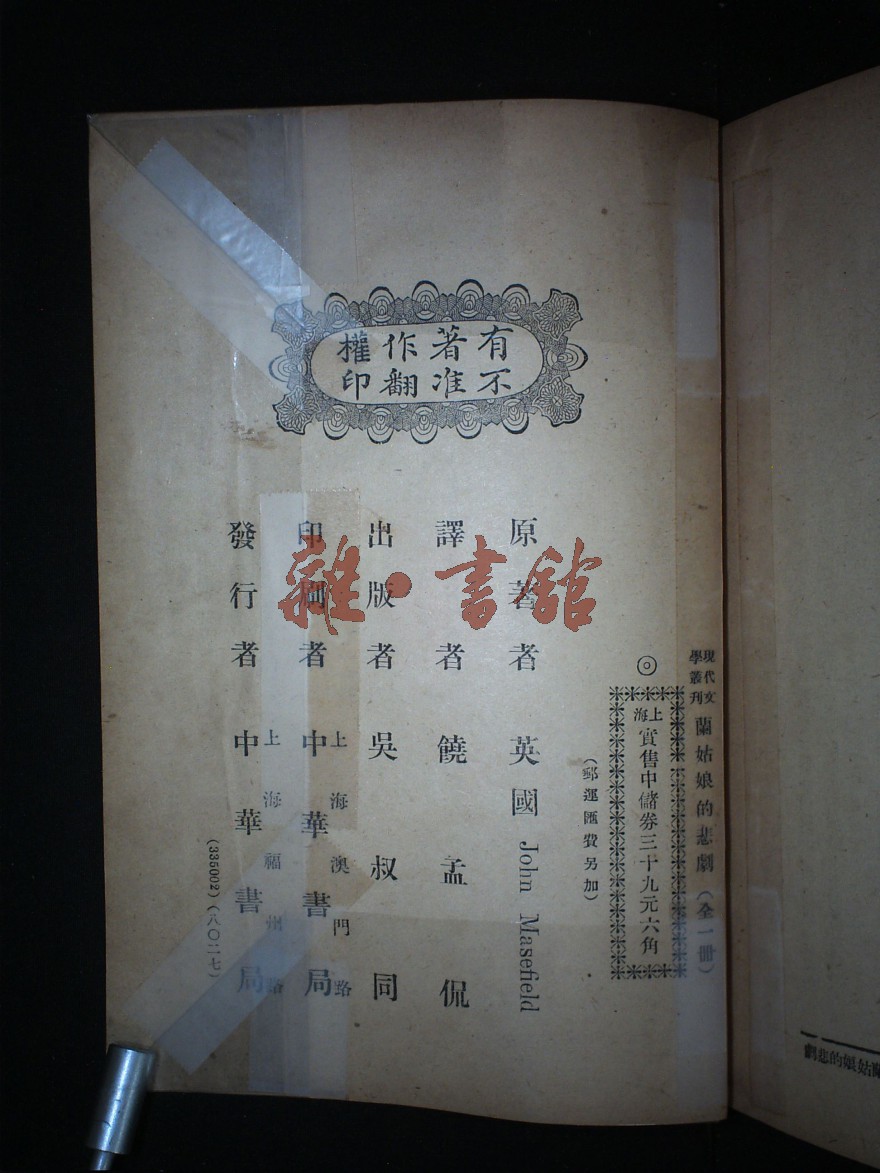 有著作權
不准翻印
現代文學叢刊 蘭姑娘的悲劇（全一冊）
◎
上海 實售中儲券三十九元六角
（郵運匯費另加）
原著者 英國 John Masefield
譯者 饒孟侃
出版者 吳叔同
印刷者 上海澳門路 中華書局
發行者 上海福州路 中華書局
（335002）（八〇二七）
雜·書館
蘭姑娘的悲劇